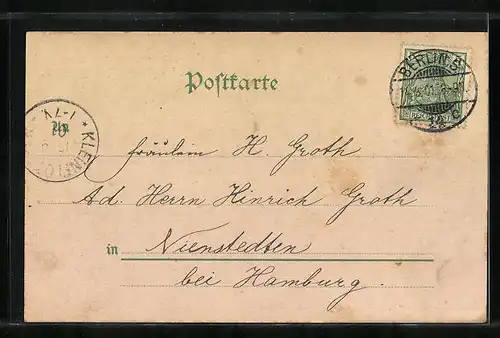 Postkarte
BERLIN.S.
C
An
KLEIN
Fräulein H. Groth
Ad. Herrn Hinrich Groth
in Nienstedten
bei Hamburg.